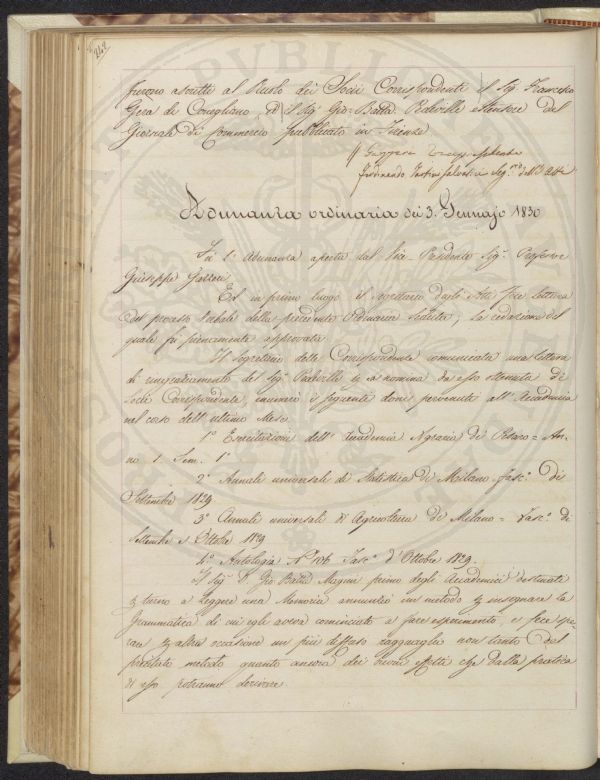 242
furono ascritti al Ruolo dei Socii Corrispondenti il Sig. Francesco
Gera di Conegliano, ed il Sig. Gio. Batta. estensore del
Giornale di Commercio pubblicato in Firenze
Ferdinando Tartini Salvatici Seg.rio d. Atti
Adunanza ordinaria dei 3. Gennajo 1830
Fu l'Adunanza aperta dal Vice-Presidente Sig. Professore
Giuseppe Gazzeri
Ed in primo luogo il Segretario degli Atti fece lettura
del processo verbale della precedente Ordinaria Seduta; la redazione del
quale fu pienamente approvata
Il Segretario delle Corrispondenze comunicata una lettera
di ringraziamento del Sig. p. la nomina da esso ottenuta di
Socio Corrispondente, enumerò i seguenti doni pervenuti all'Accademia
nel corso dell'ultimo Mese.
1° Esercitazioni dell'Accademia Agraria di Pesaro = An-
no 1. Sem. 1°
2° Annali universali di Statistica di Milano fasc.° di
Settembre 1829
3° Annali universali di Agricoltura di Milano = Fasc.° di
Settembre e Ottobre 1829
4° Antologia N° 106 Fasc.° d'Ottobre 1829.
Il Sig. D. Gio Batta Magini primo degli Accademici destinati
p. turno a leggere una Memoria annunziò un metodo p. insegnare la
Grammatica di cui egli aveva cominciato a fare esperimento, e fece spe-
rare p. altra occasione un più diffuso ragguaglio non tanto del
prestato metodo quanto ancora dei buoni effetti che dalla pratica
di esso potranno derivare.